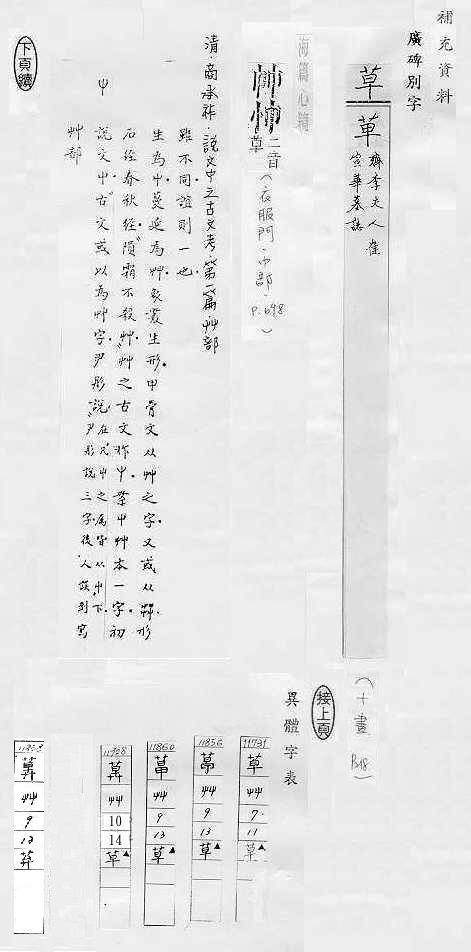 補充資料
廣碑別字
草
草 齊李夫人崔
宣華墓誌
(十畫 P.18)
接上頁
海篇心鏡
艸艸 二音
草
(衣服門·巾部·P.698)
清·商承祚·說文中之古文考·第一篇·艸部
屮
說文屮"古文或以為艸字·尹彤說"在凡屮之屬皆从屮下·
"尹彤說三字後人誤到寫
艸部
石經春秋經"隕霜不殺艸"艸之古文作屮·案屮艸本一字初
生為屮蔓延為艸象叢生形·甲骨文从艸之字·又或从茻形
雖不同誼則一也
下頁續
異體字表
11731
草
艸
7
11
草
11856
艸
9
13
草
11860
艸
9
13
草
11958
艸
10
14
草
艸
9
13